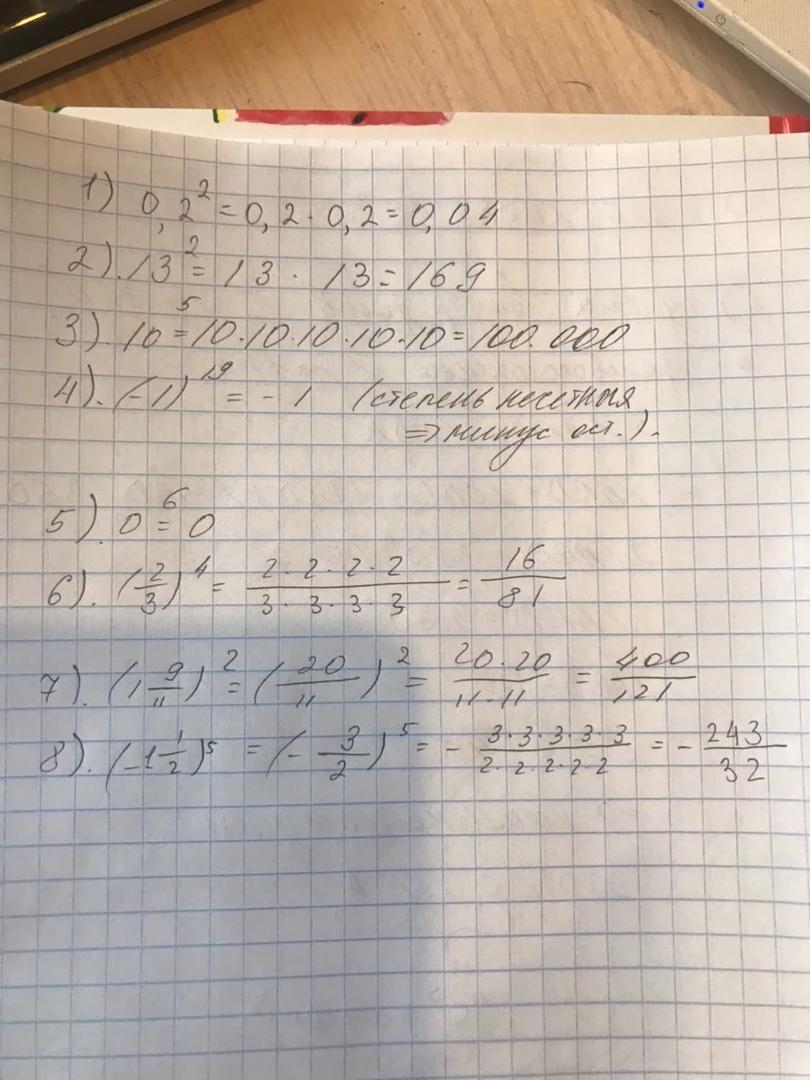 1) 0,2² = 0,2 · 0,2 = 0,04
2). 13² = 13 · 13 = 169
3). 10⁵ = 10·10·10·10·10 = 100.000
4). (-1)¹⁹ = - 1 (степень нечетная
=> минус ост.).
5). 0⁶ = 0
6). (2/3)⁴ = 2·2·2·2/3·3·3·3 = 16/81
7). (1 9/11)² = (20/11)² = 20·20/11·11 = 400/121
8). (-1 1/2)⁵ = (- 3/2)⁵ = - 3·3·3·3·3/2·2·2·2·2 = - 243/32